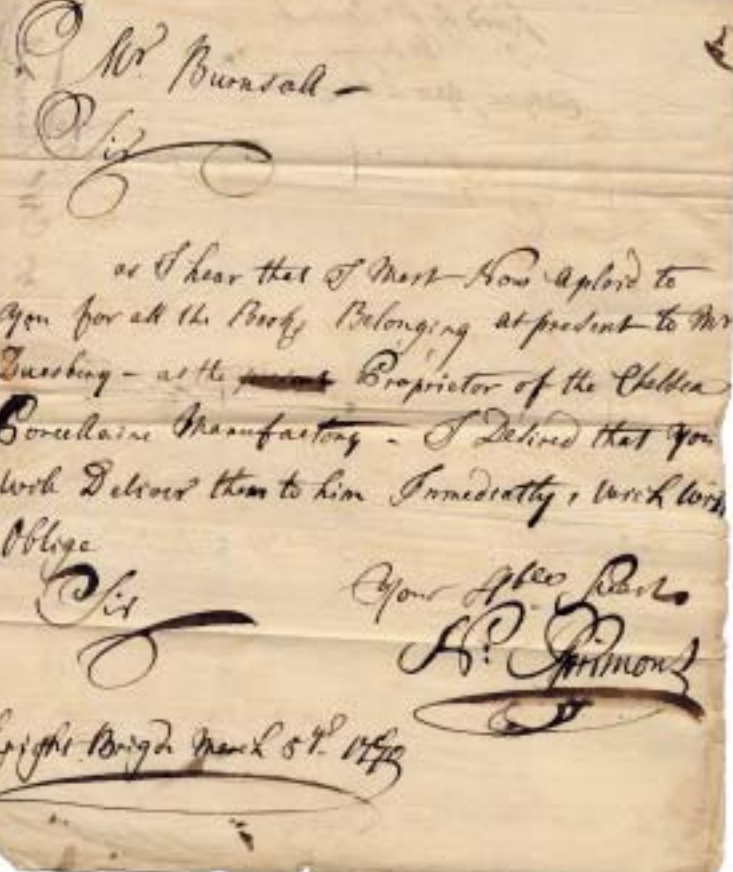 Mr. Burnsall –
Sir
as I hear that I Must Now aploid to
you for all the Books Belonging at present to Mr
Duesbury – as the Proprietor of the Chelsea
Porcellaine Manufactory – I Desired that you
will Deliver them to him Immediatly, wich will
Oblige
Sir
Your Hble Servt
N. Sprimont
Knight Brigde March 5th 1770